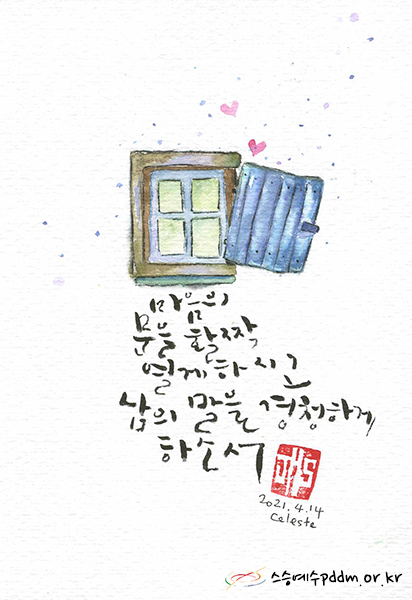 마음의
문을 활짝
열게하시고
삶의 말을 경청하게
하소서
JHS
2021.4.14
Celeste
스승예수pddm.or.kr